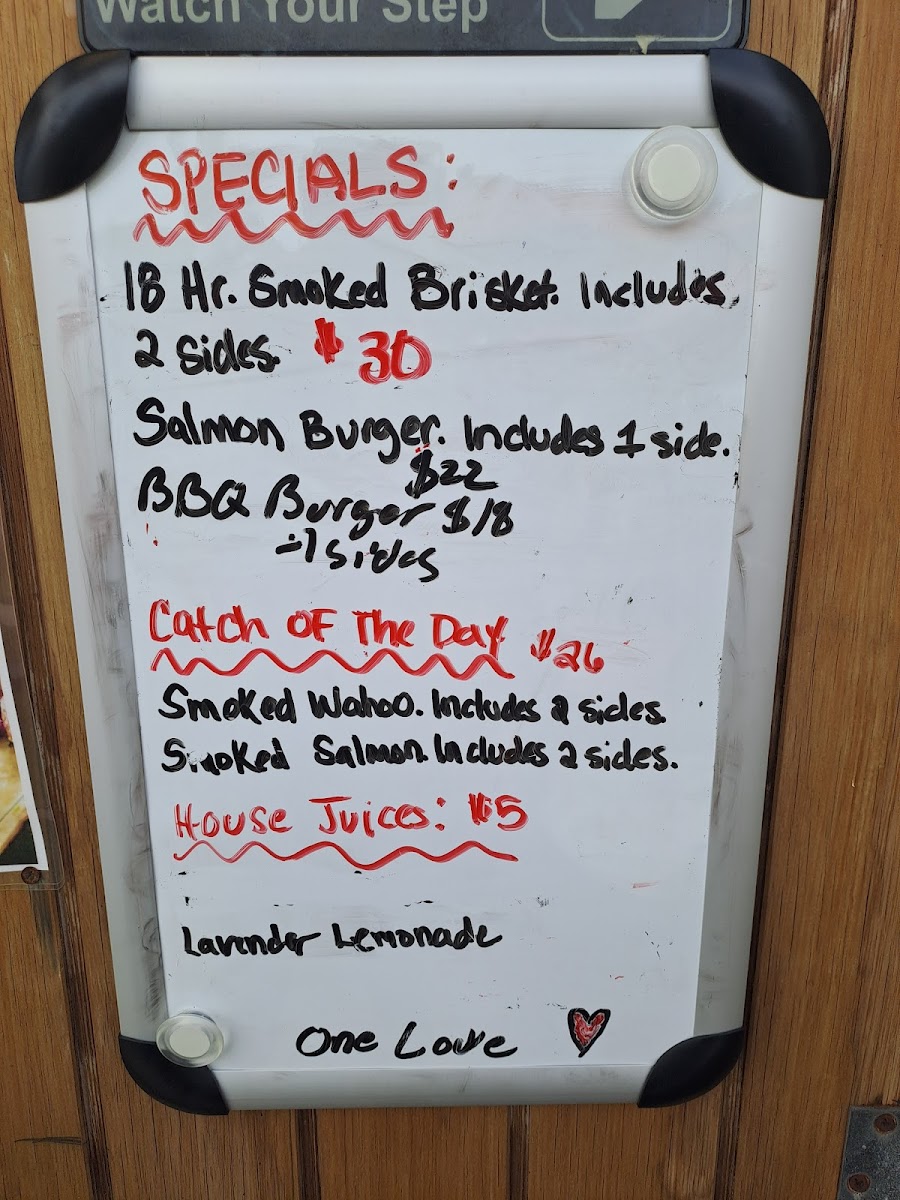 Watch Your Step
SPECIALS:
18 Hr. Smoked Brisket. Includes
2 sides. $30
Salmon Burger. Includes 1 side.
$22
BBQ Burger $18
-1 sides
Catch OF The Day $26
Smoked Wahoo. Includes 2 sides.
Smoked Salmon. Includes 2 sides.
House Juices: $5
Lavender Lemonade
One Love